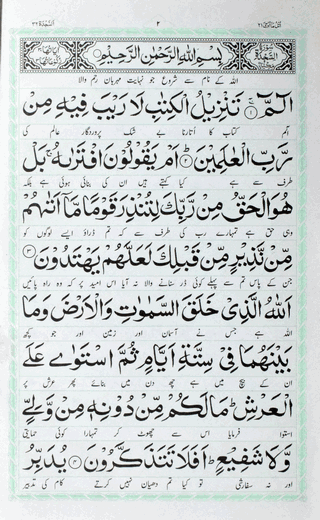 السجدة ٣٢ ٢ اتل ما اوحی ٢١
بِسْمِ اللهِ الرَّحْمٰنِ الرَّحِيْمِ
اللہ کے نام سے شروع جو نہایت مہربان رحم والا
الٓمّٓ ۚ﴿١﴾ تَنْزِيْلُ الْكِتٰبِ لَا رَيْبَ فِيْهِ مِنْ
الٓم کتاب کا اُتارنا بے شک پروردگار عالم کی
رَّبِّ الْعٰلَمِيْنَ ﴿٢﴾ اَمْ يَقُوْلُوْنَ افْتَرٰىهُ ۚ بَلْ
طرف سے ہے کیا کہتے ہیں ان کی بنائی ہوئی ہے بلکہ
هُوَ الْحَقُّ مِنْ رَّبِّكَ لِتُنْذِرَ قَوْمًا مَّاۤ اَتٰىهُمْ
وہی حق ہے تمہارے رب کی طرف سے کہ تم ڈراؤ ایسے لوگوں کو
مِّنْ نَّذِيْرٍ مِّنْ قَبْلِكَ لَعَلَّهُمْ يَهْتَدُوْنَ ﴿٣﴾
جن کے پاس تم سے پہلے کوئی ڈر سنانے والا نہ آیا اس امید پر کہ وہ راہ پائیں
اَللهُ الَّذِيْ خَلَقَ السَّمٰوٰتِ وَالْاَرْضَ وَمَا
اللہ ہے جس نے آسمان اور زمین اور جو کچھ
بَيْنَهُمَا فِيْ سِتَّةِ اَيَّامٍ ثُمَّ اسْتَوٰى عَلَى
ان کے بیچ میں ہے چھ دن میں بنائے پھر عرش پر
الْعَرْشِ ؕ مَا لَكُمْ مِّنْ دُوْنِهٖ مِنْ وَّلِيٍّ
استوا فرمایا اس سے چھوٹ کر تمہارا کوئی حمایتی
وَّلَا شَفِيْعٍ ؕ اَفَلَا تَتَذَكَّرُوْنَ ﴿٤﴾ يُدَبِّرُ
اور نہ سفارشی تو کیا تم دھیان نہیں کرتے کام کی تدبیر